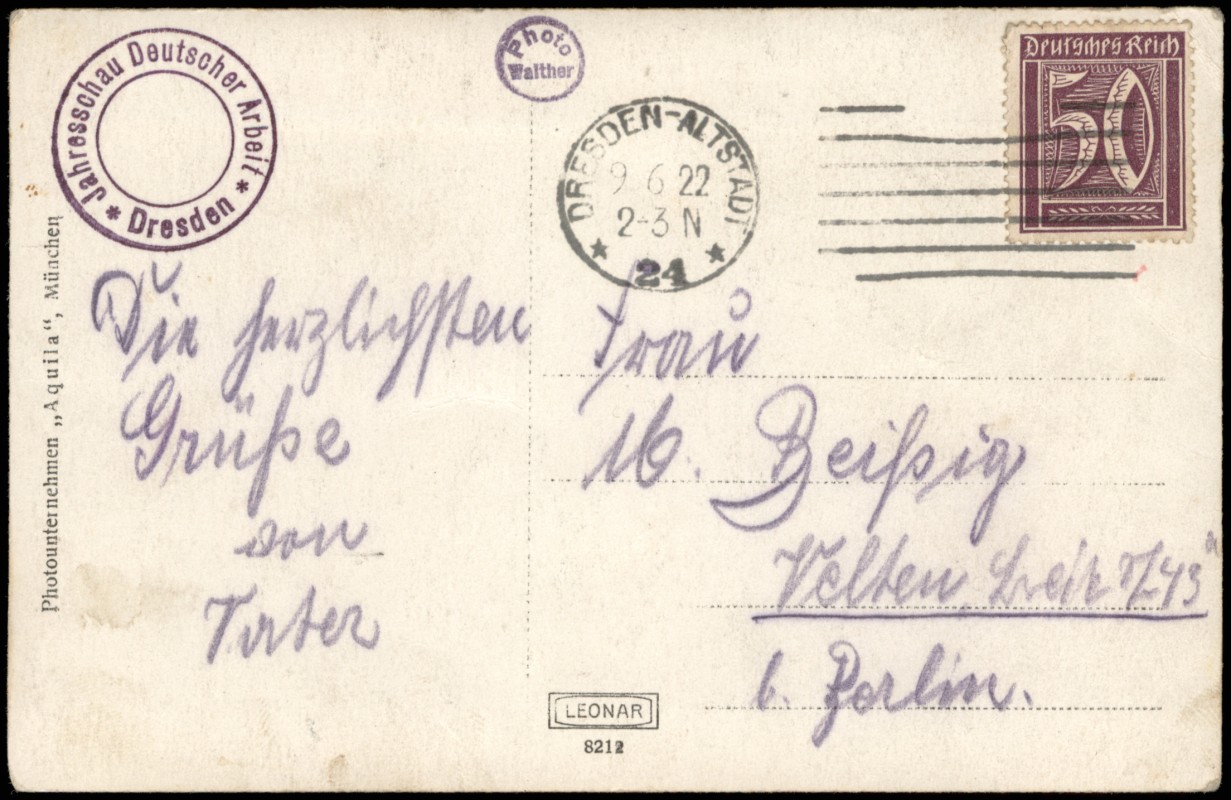 Jahresschau Deutscher Arbeit
* Dresden *
Photo
Walther
DRESDEN-ALTSTADT
9 6 22
2-3 N
* 24 *
Deutsches Reich
50
Die herzlichsten
Grüße
von
Vater
Frau
M. Beißig
Velten
b. Berlin.
Photounternehmen „Aquila“, München
LEONAR
8212